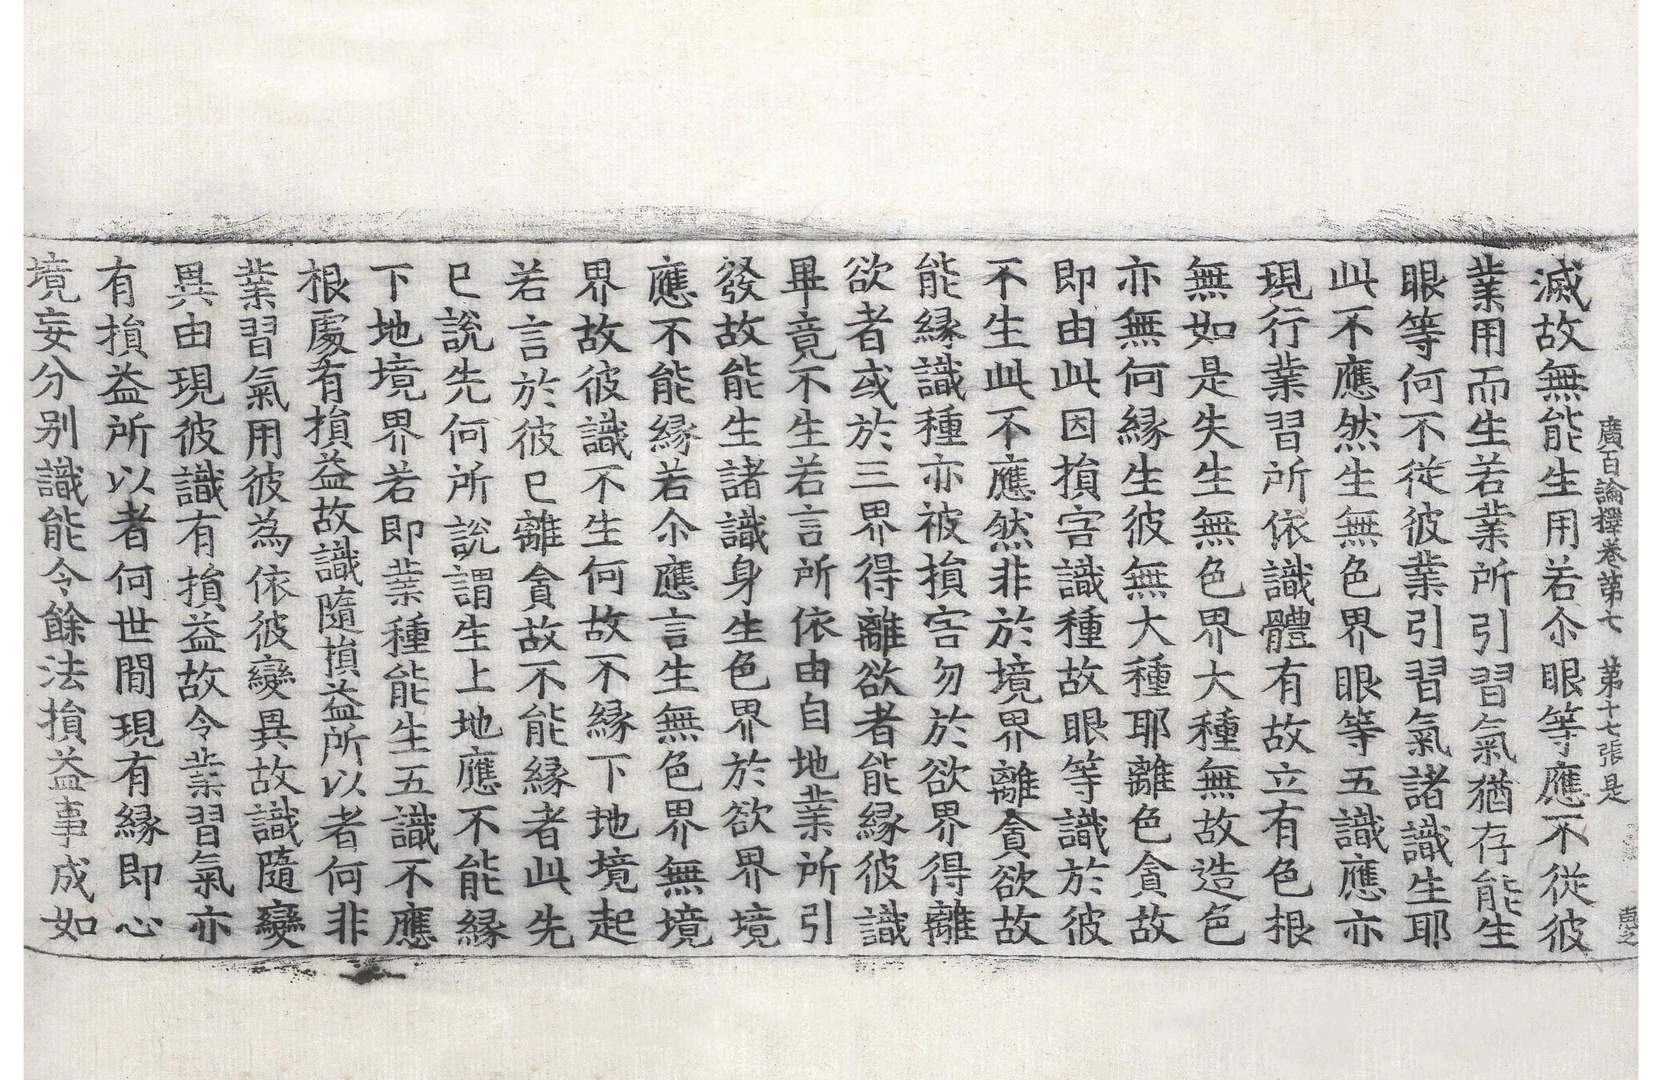 廣百論釋卷第七 第十七張 是
滅故無能生用若尒眼等應不從彼
業用而生若業所引習氣猶存能生
眼等何不從彼業引習氣諸識生耶
此不應然生無色界眼等五識應亦
現行業習所依識體有故立有色根
無如是失生無色界大種無故造色
亦無何緣生彼無大種耶離色貪故
即由此因損害識種故眼等識於彼
不生此不應然非於境界離貪欲故
能緣識種亦被損害勿於欲界得離
欲者或於三界得離欲者能緣彼識
畢竟不生若言所依由自地業所引
發故能生諸識身生色界於欲界境
應不能緣若尒應言生無色界無境
界故彼識不生何故不緣下地境起
若言於彼已離貪故不能緣者此先
已說先何所說謂生上地應不能緣
下地境界若即業種能生五識不應
根處有損益故識隨損益所以者何非
業習氣用彼為依彼變異故識隨變
異由現彼識有損益故令業習氣亦
有損益所以者何世間現有緣即心
境妄分別識能令餘法損益事成如